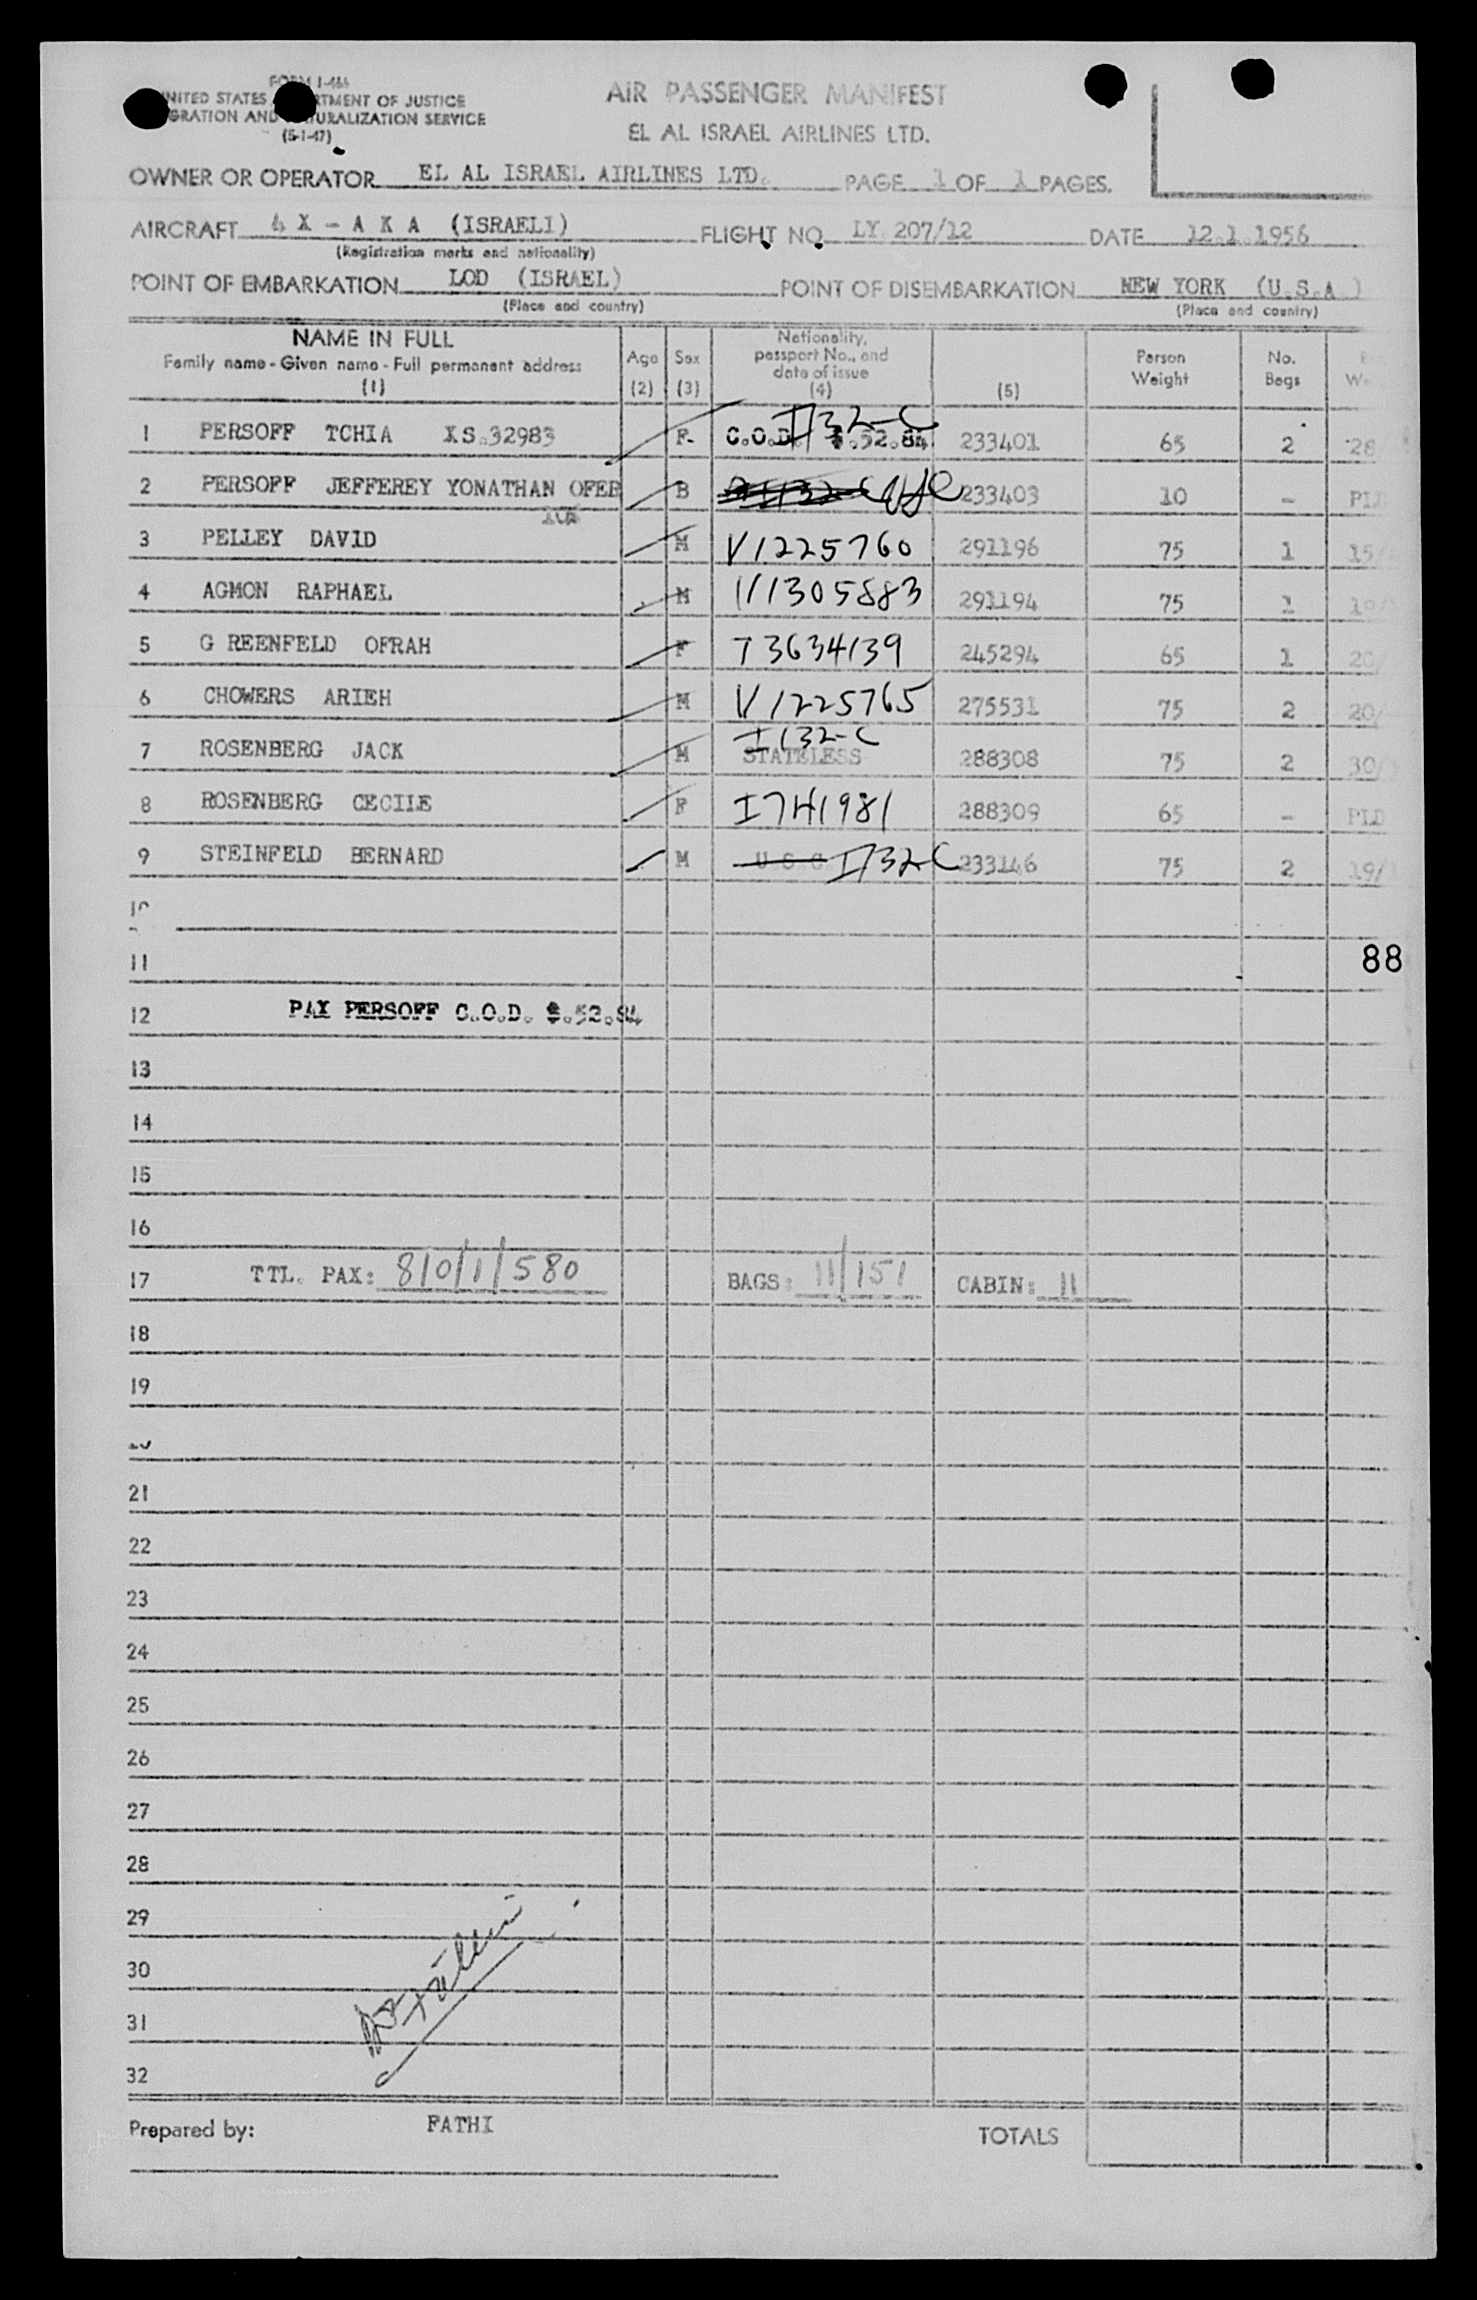 FORM I-466
UNITED STATES DEPARTMENT OF JUSTICE
IMMIGRATION AND NATURALIZATION SERVICE
(5-1-47)
AIR PASSENGER MANIFEST
EL AL ISRAEL AIRLINES LTD.
OWNER OR OPERATOR EL AL ISRAEL AIRLINES LTD. PAGE 1 OF 1 PAGES.
AIRCRAFT 4 X - A K A (ISRAELI) FLIGHT NO. LY 207/12 DATE 12.1.1956
(Registration marks and nationality)
POINT OF EMBARKATION LOD (ISRAEL) POINT OF DISEMBARKATION NEW YORK (U.S.A )
(Place and country) (Place and country)
NAME IN FULL
Family name - Given name - Full permanent address
(1)
Age
(2)
Sex
(3)
Nationality,
passport No., and
date of issue
(4)
(5)
Person
Weight
No.
Bags
1 PERSOFF TCHIA XS.32983 F. C.O.D. $.52.84 I132-C 233401 65 2 28
2 PERSOFF JEFFEREY YONATHAN OFER B 233403 10 - PLD
3 PELLEY DAVID M V1225760 291196 75 1 15/
4 AGMON RAPHAEL M V1305883 291194 75 1
5 G REENFELD OFRAH F T3634139 245294 65 1 20/
6 CHOWERS ARIEH M V1225765 275531 75 2 20/
7 ROSENBERG JACK M I132-C STATELESS 288308 75 2 30/
8 ROSENBERG CECILE F I741981 288309 65 - PLD
9 STEINFELD BERNARD M U S C I132C 233146 75 2 19/
10
11
88
12 PAX PERSOFF C.O.D. $.52.84
13
14
15
16
17 TTL. PAX: 8/0/1/580 BAGS: 11/151 CABIN: 11
18
19
20
21
22
23
24
25
26
27
28
29
30
31
32
Prepared by: FATHI TOTALS